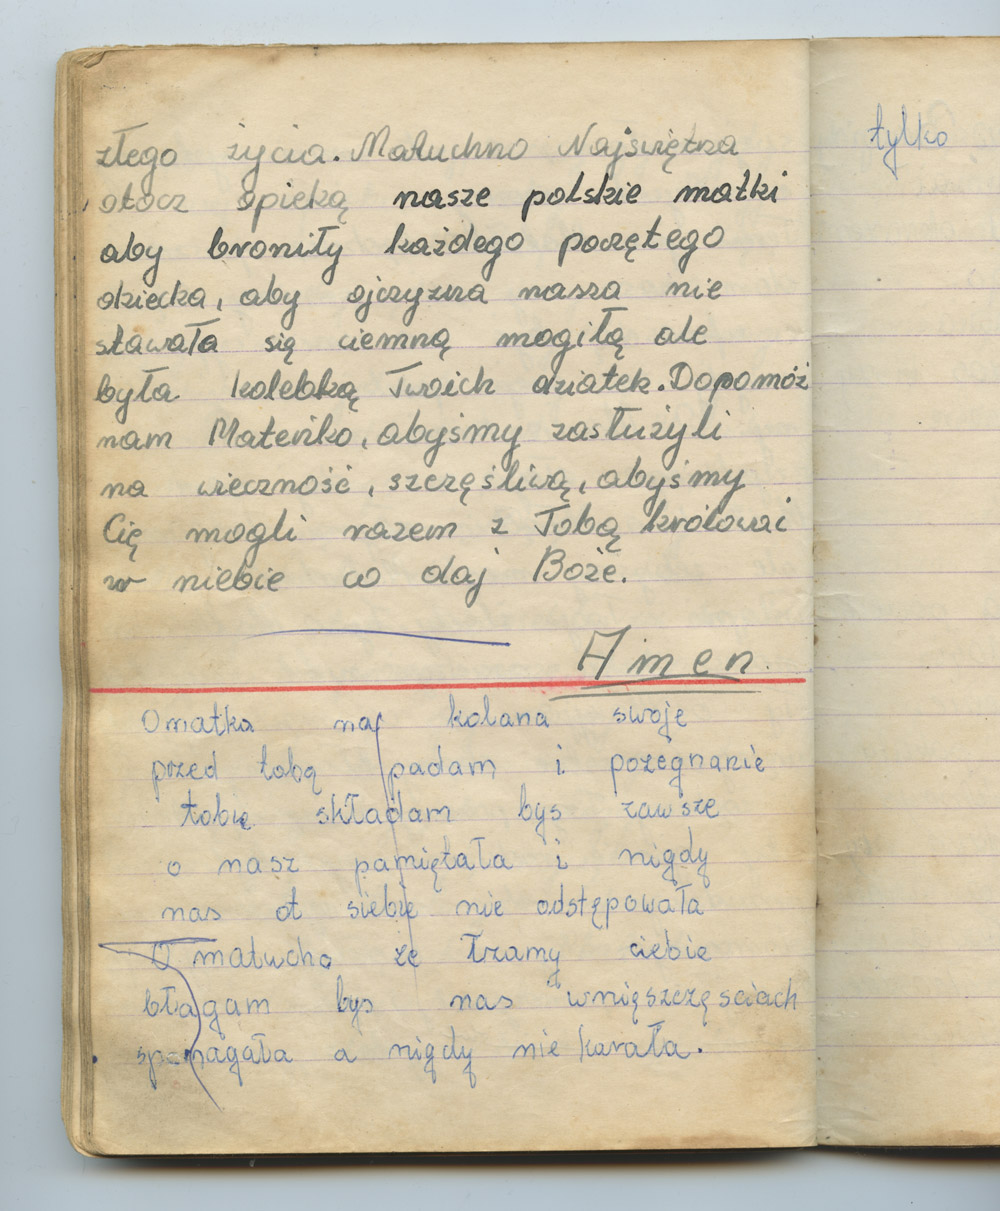 złego życia. Matuchno Najświętsza
otocz opieką nasze polskie matki
aby broniły każdego poczętego
dziecka, aby ojczyzna nasza nie
stawała się ciemną mogiłą ale
była kolebką Twoich dziatek. Dopomóż
nam Mateńko, abyśmy zasłużyli
na wieczność, szczęśliwą, abyśmy
Cię mogli razem z Tobą królować
w niebie co daj Boże.
Amen.
O matka na kolana swoje
przed tobą padam i pozegnanie
tobie składam bys zawsze
o nasz pamiętała i nigdy
nas ot siebie nie odstępowała
O matucho ze łzamy ciebie
błagam bys nas wnięszczęsciach
spomagała a nigdy nie karała.
tylko